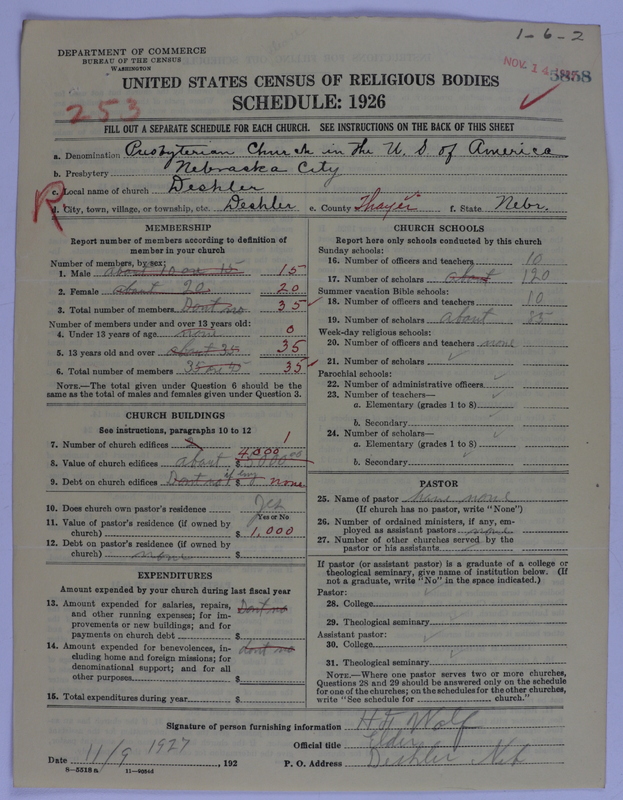 1-6-2
DEPARTMENT OF COMMERCE
BUREAU OF THE CENSUS
WASHINGTON
NOV. 14
5858
UNITED STATES CENSUS OF RELIGIOUS BODIES
SCHEDULE: 1926
253
FILL OUT A SEPARATE SCHEDULE FOR EACH CHURCH. SEE INSTRUCTIONS ON THE BACK OF THIS SHEET
a. Denomination Presbyterian Church in the U. S. of America
b. Presbytery Nebraska City
c. Local name of church Deshler
R
d. City, town, village, or township, etc. Deshler e. County Thayer f. State Nebr.
MEMBERSHIP
Report number of members according to definition of
member in your church
Number of members, by sex:
1. Male about 10 or 15 15
2. Female about 20 20
3. Total number of members Dont no 35
Number of members under and over 13 years old:
4. Under 13 years of age none 0
5. 13 years old and over about 35 35
6. Total number of members 35 35
NOTE.—The total given under Question 6 should be the
same as the total of males and females given under Question 3.
CHURCH BUILDINGS
See instructions, paragraphs 10 to 12
7. Number of church edifices 1
4,000
8. Value of church edifices about $
9. Debt on church edifices Dont no if any $ none
10. Does church own pastor's residence Yes
Yes or No
11. Value of pastor's residence (if owned by
church) $ 1,000
12. Debt on pastor's residence (if owned by
church) none $
EXPENDITURES
Amount expended by your church during last fiscal year
13. Amount expended for salaries, repairs,
and other running expenses; for im-
provements or new buildings; and for
payments on church debt $ Dont no
14. Amount expended for benevolences, in-
cluding home and foreign missions; for
denominational support; and for all
other purposes $ dont no
15. Total expenditures during year $
CHURCH SCHOOLS
Report here only schools conducted by this church
Sunday schools:
16. Number of officers and teachers 10
17. Number of scholars about 120
Summer vacation Bible schools:
18. Number of officers and teachers 10
19. Number of scholars about 85
Week-day religious schools:
20. Number of officers and teachers none
21. Number of scholars
Parochial schools:
22. Number of administrative officers
23. Number of teachers—
a. Elementary (grades 1 to 8)
b. Secondary
24. Number of scholars—
a. Elementary (grades 1 to 8)
b. Secondary
PASTOR
25. Name of pastor have none
(If church has no pastor, write "None")
26. Number of ordained ministers, if any, em-
ployed as assistant pastors none
27. Number of other churches served by the
pastor or his assistants
If pastor (or assistant pastor) is a graduate of a college or
theological seminary, give name of institution below. (If
not a graduate, write "No" in the space indicated.)
Pastor:
28. College
29. Theological seminary
Assistant pastor:
30. College
31. Theological seminary
NOTE.—Where one pastor serves two or more churches,
Questions 28 and 29 should be answered only on the schedule
for one of the churches; on the schedules for the other churches,
write "See schedule for church."
Signature of person furnishing information H H Wolf
Official title Elder
Date 11/9 1927, 192 P. O. Address Deshler Neb
8—5518 a 11—9054d